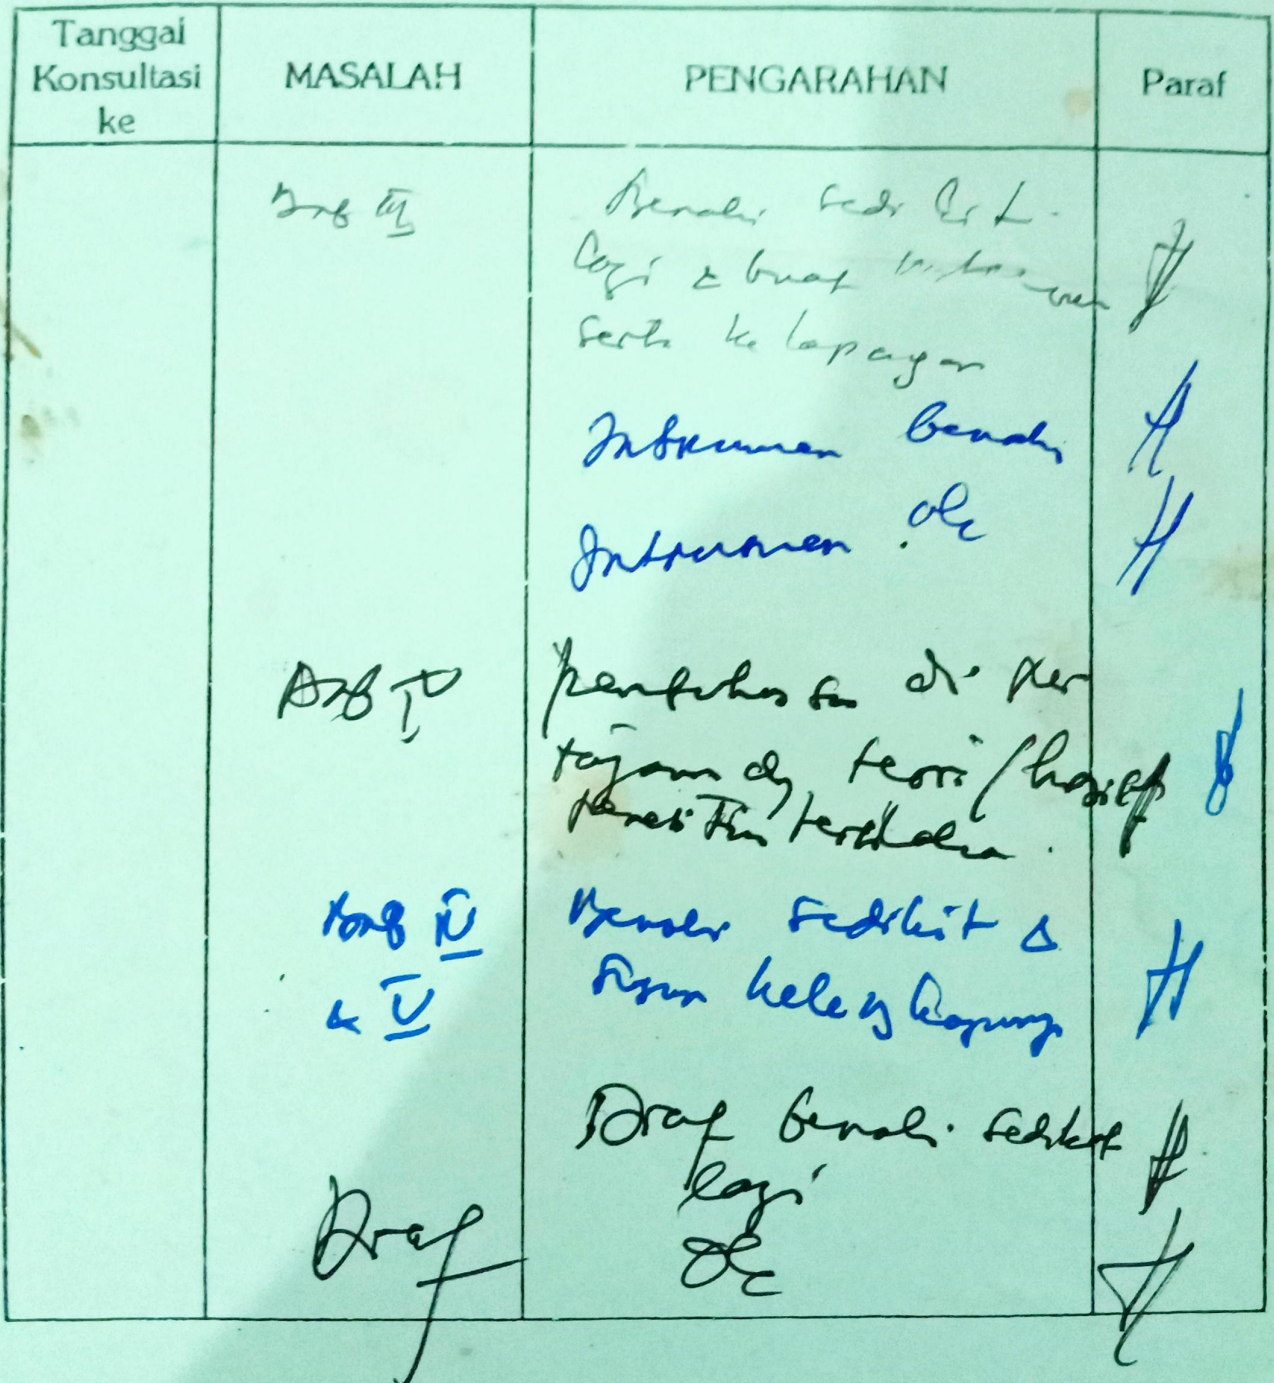 Tanggal
Konsultasi
ke
MASALAH
PENGARAHAN
Paraf
Bab III
Benahi sedikit
lagi & buat instrumen
serta ke lapangan
Instrumen benahi
Instrumen ok
Bab IV
pembahasan di per
tajam dg teori/hasil
penelitian terdahulu.
Bab IV
& V
Benahi sedikit &
susun kelengkapannya
Draf benahi sedikit
lagi
Draf
Ok